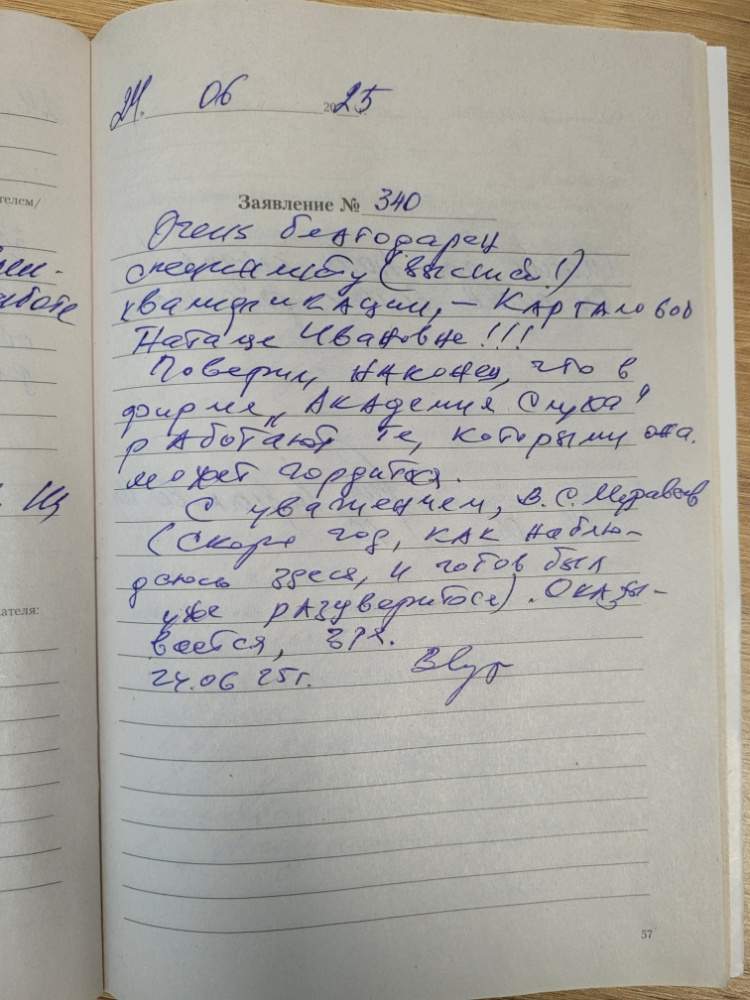 24. 06 2025
Заявление № 340
Очень благодарен
специалисту (высшей!)
квалификации, – Карталовой
Наталье Ивановне!!!
Поверил, наконец, что в
фирме „Академия Слуха"
работают те, которыми она
может гордиться.
С уважением, В.С. Муравьев
(Скоро год, как наблю-
даюсь здесь, и готов был
уже разувериться). Оказы-
вается, зря.
24.06 25г.
57
телем/
аботе
ателя: